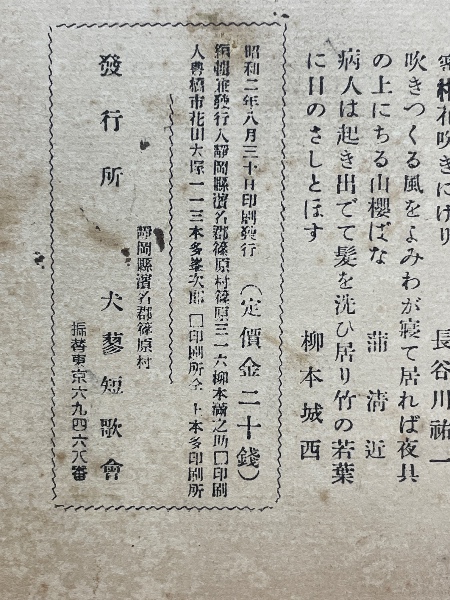 柿花吹きにけり　長谷川祐一
吹きつくる風をよみわが寝て居れば夜具
の上にちる山櫻ばな　蒲淸近
病人は起き出でて髪を洗ひ居り竹の若葉
に日のさしとほす　柳本城西
昭和二年八月三十日印刷發行（定價金二十錢）
編輯兼發行人靜岡縣濱名郡篠原村篠原三一六柳本滿之助□印刷
人豊橋市花田大塚一一三本多峯次郎□印刷所仝上本多印刷所
靜岡縣濱名郡篠原村
發行所　犬蓼短歌會
振替東京六九四六八番